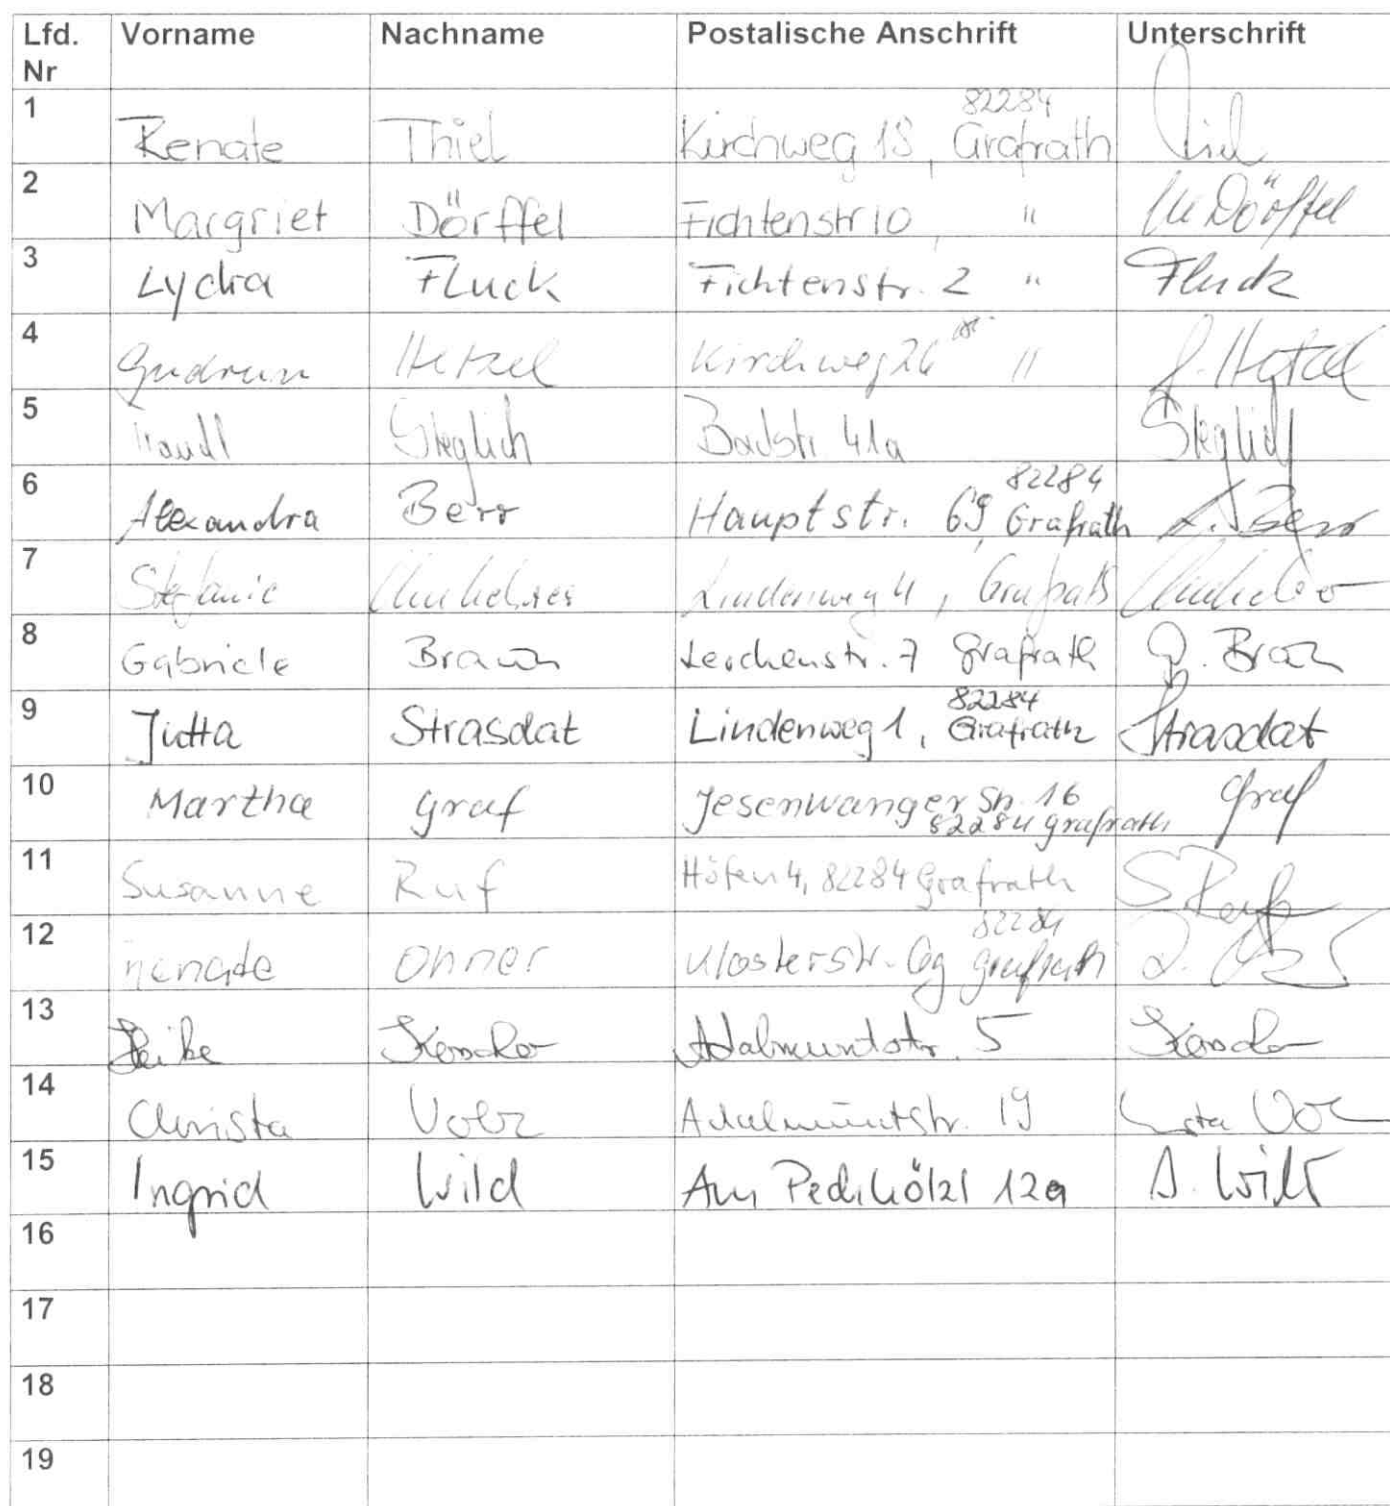 Lfd. Nr Vorname Nachname Postalische Anschrift Unterschrift
1 Renate Thiel Kirchweg 18, 82284 Grafrath
2 Margriet Dörffel Fichtenstr 10, " M Dörffel
3 Lydia Fluck Fichtenstr. 2 " Fluck
4 Gudrun Hetzel Kirchweg 26 " G. Hetzel
5 Steglich Badstr 41a Steglich
6 Alexandra Berr Hauptstr. 69, 82284 Grafrath A. Berr
7 Stefanie Lindenweg 4, Grafrath
8 Gabriele Braun Lerchenstr. 7 Grafrath G. Braun
9 Jutta Strasdat Lindenweg 1, 82284 Grafrath Strasdat
10 Martha Graf Jesenwanger Str. 16 Graf
82284 Grafrath
11 Susanne Ruf Höfen 4, 82284 Grafrath S Ruf
12 Renate Ohner Klosterstr. 82284 Grafrath
13 Heike Adalmuntstr. 5
14 Christa Volz Adalmuntstr. 19
15 Ingrid Wild Am 12a I. Wild
16
17
18
19